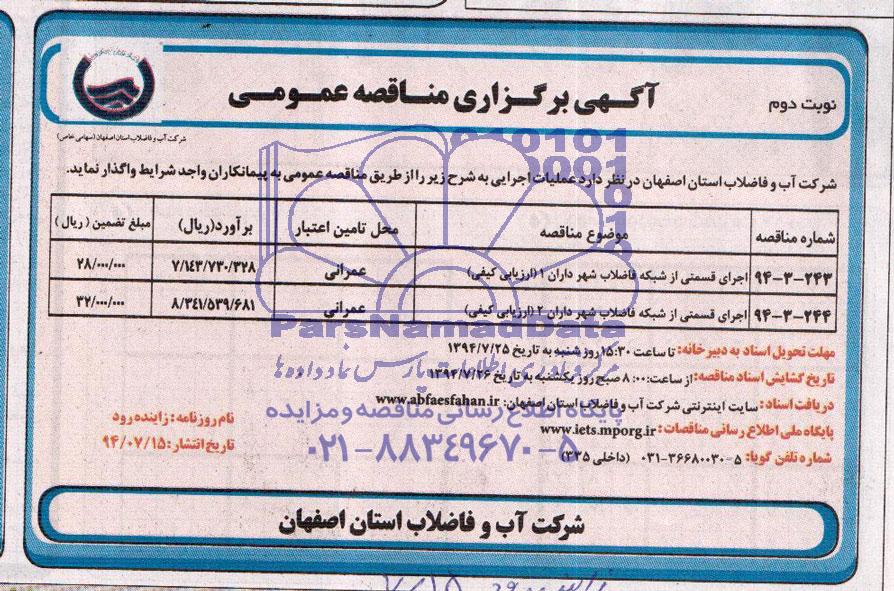 آگهی برگزاری مناقصه عمومی
نوبت دوم
شرکت آب و فاضلاب استان اصفهان (سهامی خاص)
شرکت آب و فاضلاب استان اصفهان در نظر دارد عملیات اجرایی به شرح زیر را از طریق مناقصه عمومی به پیمانکاران واجد شرایط واگذار نماید.
شماره مناقصه موضوع مناقصه محل تامین اعتبار برآورد(ریال) مبلغ تضمین (ریال)
۹۴-۳-۲۴۳ اجرای قسمتی از شبکه فاضلاب شهر داران ۱ (ارزیابی کیفی) عمرانی ۷/۱۴۳/۷۳۰/۳۲۸ ۲۸/۰۰۰/۰۰۰
۹۴-۳-۲۴۴ اجرای قسمتی از شبکه فاضلاب شهر داران ۲ (ارزیابی کیفی) عمرانی ۸/۳۴۱/۵۳۹/۶۸۱ ۳۲/۰۰۰/۰۰۰
مهلت تحویل اسناد به دبیرخانه: تا ساعت ۱۵:۳۰ روز شنبه به تاریخ ۱۳۹۴/۷/۲۵
تاریخ گشایش اسناد مناقصه: از ساعت ۸:۰۰ صبح روز یکشنبه به تاریخ ۱۳۹۴/۷/۲۶
دریافت اسناد: سایت اینترنتی شرکت آب و فاضلاب استان اصفهان: www.abfaesfahan.ir
پایگاه ملی اطلاع رسانی مناقصات: www.iets.mporg.ir
شماره تلفن گویا: ۵-۰۳۱-۳۶۶۸۰۰۳۰ (داخلی ۳۳۵)
نام روزنامه: زاینده رود
تاریخ انتشار: ۹۴/۰۷/۱۵
شرکت آب و فاضلاب استان اصفهان
ParsNamadData
مرکز فرآوری اطلاعات پارس نماد داده ها
پایگاه اطلاع رسانی مناقصه و مزایده
۰۲۱-۸۸۳۴۹۶۷۰-۵